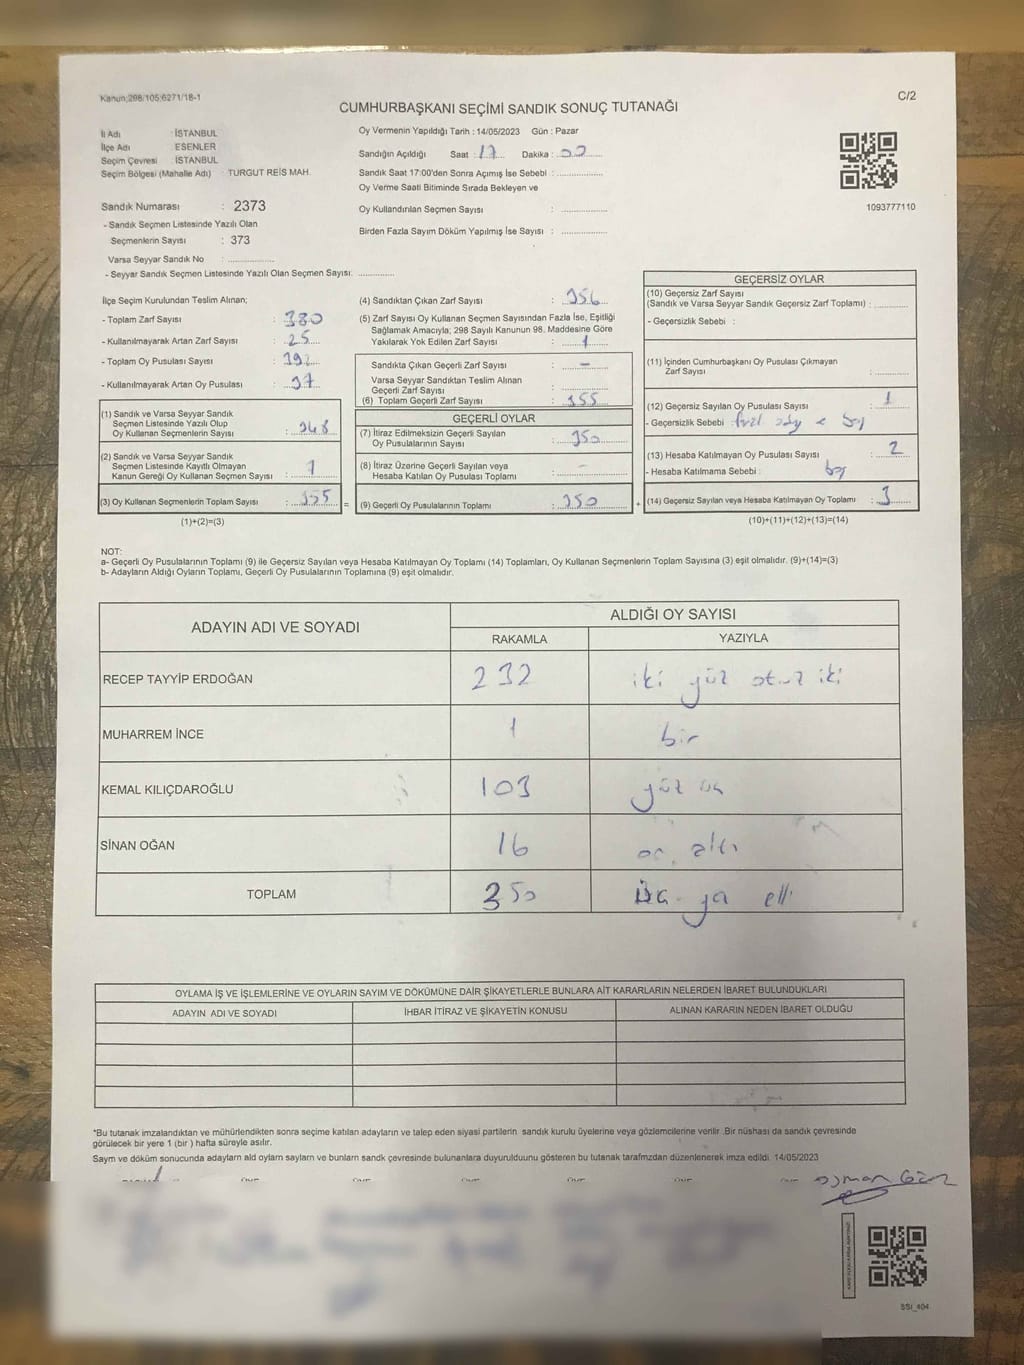 Kanun;298/105;6271/18-1
C/2
CUMHURBAŞKANI SEÇİMİ SANDIK SONUÇ TUTANAĞI
İl Adı : İSTANBUL
İlçe Adı : ESENLER
Seçim Çevresi : İSTANBUL
Seçim Bölgesi (Mahalle Adı) : TURGUT REİS MAH.
Sandık Numarası : 2373
- Sandık Seçmen Listesinde Yazılı Olan
Seçmenlerin Sayısı : 373
Varsa Seyyar Sandık No : ..............
- Seyyar Sandık Seçmen Listesinde Yazılı Olan Seçmen Sayısı: ............
Oy Vermenin Yapıldığı Tarih : 14/05/2023 Gün : Pazar
Sandığın Açıldığı Saat : 17 Dakika :
Sandık Saat 17:00'den Sonra Açımış İse Sebebi : ..............
Oy Verme Saati Bitiminde Sırada Bekleyen ve
Oy Kullandırılan Seçmen Sayısı : ..............
Birden Fazla Sayım Döküm Yapılmış İse Sayısı : ..............
1093777110
İlçe Seçim Kurulundan Teslim Alınan;
- Toplam Zarf Sayısı : 380
- Kullanılmayarak Artan Zarf Sayısı : 25
- Toplam Oy Pusulası Sayısı :
- Kullanılmayarak Artan Oy Pusulası : 37
(1) Sandık ve Varsa Seyyar Sandık
Seçmen Listesinde Yazılı Olup
Oy Kullanan Seçmenlerin Sayısı : 348
(2) Sandık ve Varsa Seyyar Sandık
Seçmen Listesinde Kayıtlı Olmayan
Kanun Gereği Oy Kullanan Seçmen Sayısı :
(3) Oy Kullanan Seçmenlerin Toplam Sayısı : 355 =
(1)+(2)=(3)
(4) Sandıktan Çıkan Zarf Sayısı : 356
(5) Zarf Sayısı Oy Kullanan Seçmen Sayısından Fazla İse, Eşitliği
Sağlamak Amacıyla; 298 Sayılı Kanunun 98. Maddesine Göre
Yakılarak Yok Edilen Zarf Sayısı : 1
Sandıkta Çıkan Geçerli Zarf Sayısı : -
Varsa Seyyar Sandıktan Teslim Alınan
Geçerli Zarf Sayısı : ..............
(6) Toplam Geçerli Zarf Sayısı : 355
GEÇERLİ OYLAR
(7) İtiraz Edilmeksizin Geçerli Sayılan
Oy Pusulasının Sayısı : 350
(8) İtiraz Üzerine Geçerli Sayılan veya
Hesaba Katılan Oy Pusulası Toplamı : -
(9) Geçerli Oy Pusulalarının Toplamı : 350 +
GEÇERSİZ OYLAR
(10) Geçersiz Zarf Sayısı
(Sandık ve Varsa Seyyar Sandık Geçersiz Zarf Toplamı) : ........
- Geçersizlik Sebebi :
(11) İçinden Cumhurbaşkanı Oy Pusulası Çıkmayan
Zarf Sayısı : ........
(12) Geçersiz Sayılan Oy Pusulası Sayısı : 1
- Geçersizlik Sebebi
(13) Hesaba Katılmayan Oy Pusulası Sayısı : 2
- Hesaba Katılmama Sebebi :
(14) Geçersiz Sayılan veya Hesaba Katılmayan Oy Toplamı : 3
(10)+(11)+(12)+(13)=(14)
NOT:
a- Geçerli Oy Pusulalarının Toplamı (9) ile Geçersiz Sayılan veya Hesaba Katılmayan Oy Toplamı (14) Toplamları, Oy Kullanan Seçmenlerin Toplam Sayısına (3) eşit olmalıdır. (9)+(14)=(3)
b- Adayların Aldığı Oyların Toplamı, Geçerli Oy Pusulalarının Toplamına (9) eşit olmalıdır.
ADAYIN ADI VE SOYADI
ALDIĞI OY SAYISI
RAKAMLA YAZIYLA
RECEP TAYYİP ERDOĞAN 232 iki yüz otuz iki
MUHARREM İNCE 1 bir
KEMAL KILIÇDAROĞLU 103 yüz üç
SİNAN OĞAN 16 on altı
TOPLAM 350 elli
OYLAMA İŞ VE İŞLEMLERİNE VE OYLARIN SAYIM VE DÖKÜMÜNE DAİR ŞİKAYETLERLE BUNLARA AİT KARARLARIN NELERDEN İBARET BULUNDUKLARI
ADAYIN ADI VE SOYADI İHBAR İTİRAZ VE ŞİKAYETİN KONUSU ALINAN KARARIN NEDEN İBARET OLDUĞU
*Bu tutanak imzalandıktan ve mühürlendikten sonra seçime katılan adayların ve talep eden siyasi partilerin sandık kurulu üyelerine veya gözlemcilerine verilir .Bir nüshası da sandık çevresinde
görülecek bir yere 1 (bir ) hafta süreyle asılır.
Sayım ve döküm sonucunda adayların ald oyların sayların ve bunların sandk çevresinde bulunanlara duyurulduunu gösteren bu tutanak tarafmzdan düzenlenerek imza edildi. 14/05/2023
SSI_404